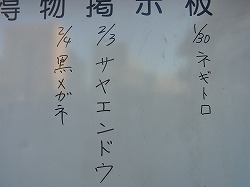 得物掲示板
1/30 ネギトロ
2/3 サヤエンドウ
2/4 黒メガネ